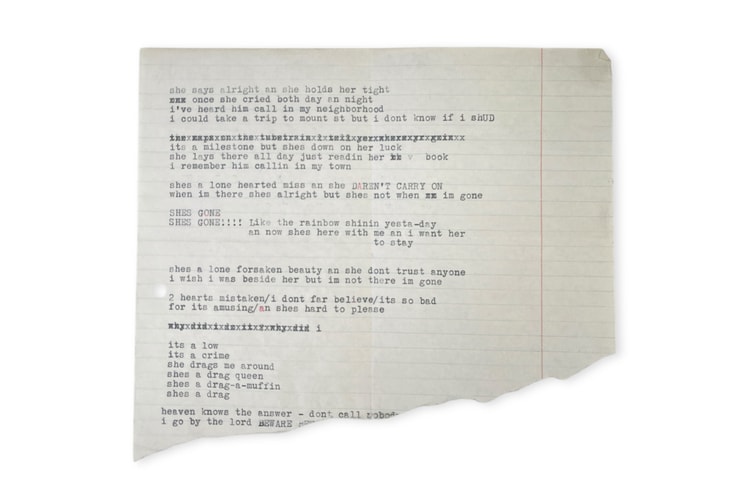 she says alright an she holds her tight
once she cried both day an night
i've heard him call in my neighborhood
i could take a trip to mount st but i dont know if i shUD
its a milestone but shes down on her luck
she lays there all day just readin her book
i remember him callin in my town
shes a lone hearted miss an she DAREN'T CARRY ON
when im there shes alright but shes not when im gone
SHES GONE
SHES GONE!!!! Like the rainbow shinin yesta-day
an now shes here with me an i want her
to stay
shes a lone forsaken beauty an she dont trust anyone
i wish i was beside her but im not there im gone
2 hearts mistaken/i dont far believe/its so bad
for its amusing/an shes hard to please
why did i do it why did i
its a low
its a crime
she drags me around
shes a drag queen
shes a drag-a-muffin
shes a drag
heaven knows the answer - dont call nobody
i go by the lord BEWARE